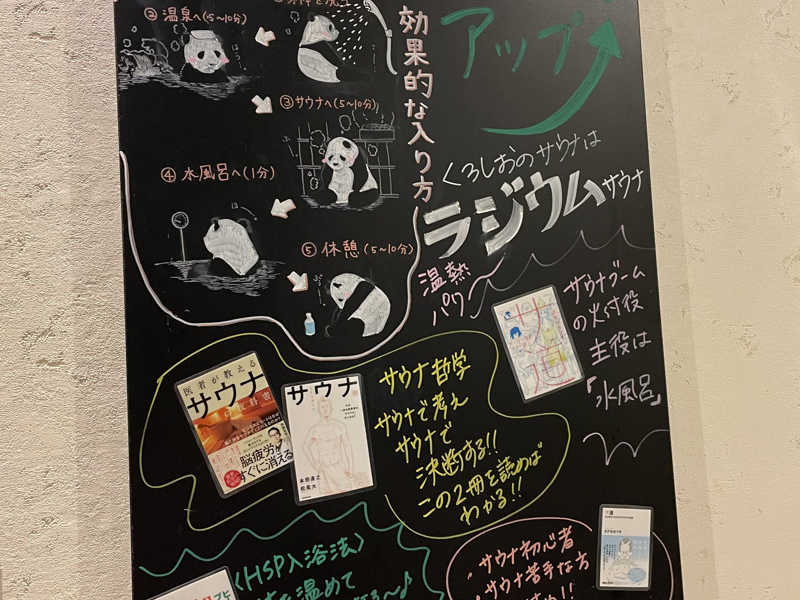 ②温泉へ(5~10分)
③サウナへ(5~10分)
④水風呂へ(1分)
⑤休憩(5~10分)
効果的な入り方
アップ
くろしおのサウナは
ラジウムサウナ
温熱
パワー
サウナブーム
の火付役
主役は
「水風呂」
医者が教える
サウナ
脳疲労が
すぐに消える
サウナ
本田直之
松尾大
サウナ哲学
サウナで考え
サウナで
決断する!!
この2冊を読めば
わかる!!
サ道
〈HSP入浴法〉
を温めて
・サウナ初心者
・サウナ苦手な方